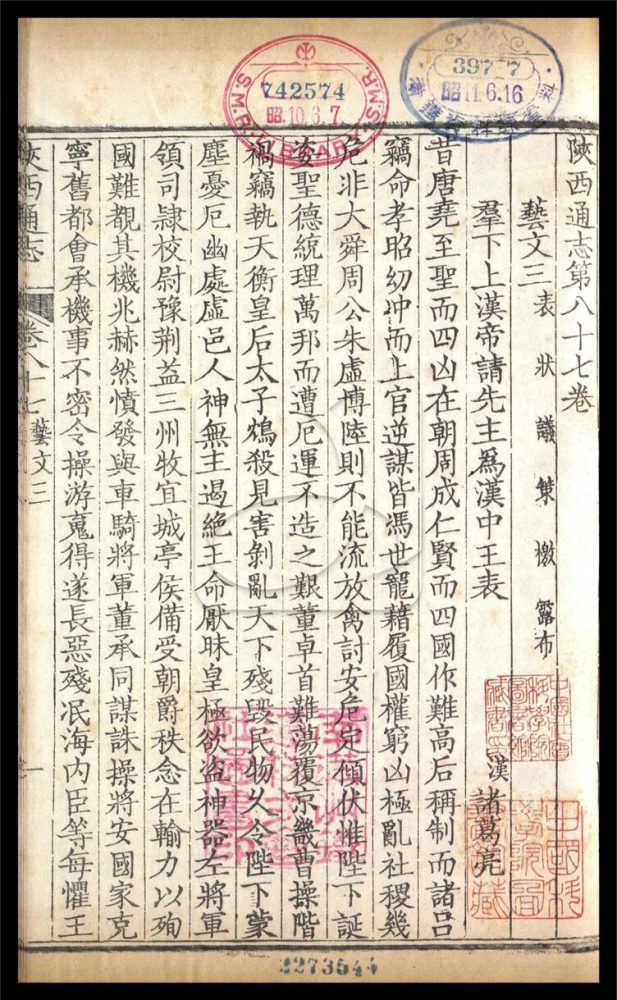 742574
昭10.6.7
S.M.R. LIBRARY S.M.R.
397 7
昭11.6.16
陝西通志第八十七卷
藝文三 表 狀 議 策 檄 露布
羣下上漢帝請先主爲漢中王表 漢 諸葛亮
昔唐堯至聖而四凶在朝周成仁賢而四國作難高后稱制而諸呂
竊命孝昭幼冲而上官逆謀皆馮世寵藉履國權窮凶極亂社稷幾
危非大舜周公朱虛博陸則不能流放禽討安危定傾伏惟陛下誕
姿聖德統理萬邦而遭厄運不造之艱董卓首難蕩覆京畿曹操階
禍竊執天衡皇后太子鴆殺見害剝亂天下殘毀民物久令陛下蒙
塵憂厄幽處虛邑人神無主遏絕王命厭昧皇極欲盜神器左將軍
領司隷校尉豫荆益三州牧宜城亭侯備受朝爵秩念在輸力以殉
國難覩其機兆赫然憤發與車騎將軍董承同謀誅操將安國家克
寧舊都會承機事不密令操游䰟得遂長惡殘泯海內臣等每懼王
陝西通志 卷八十七 藝文三 一
2273544